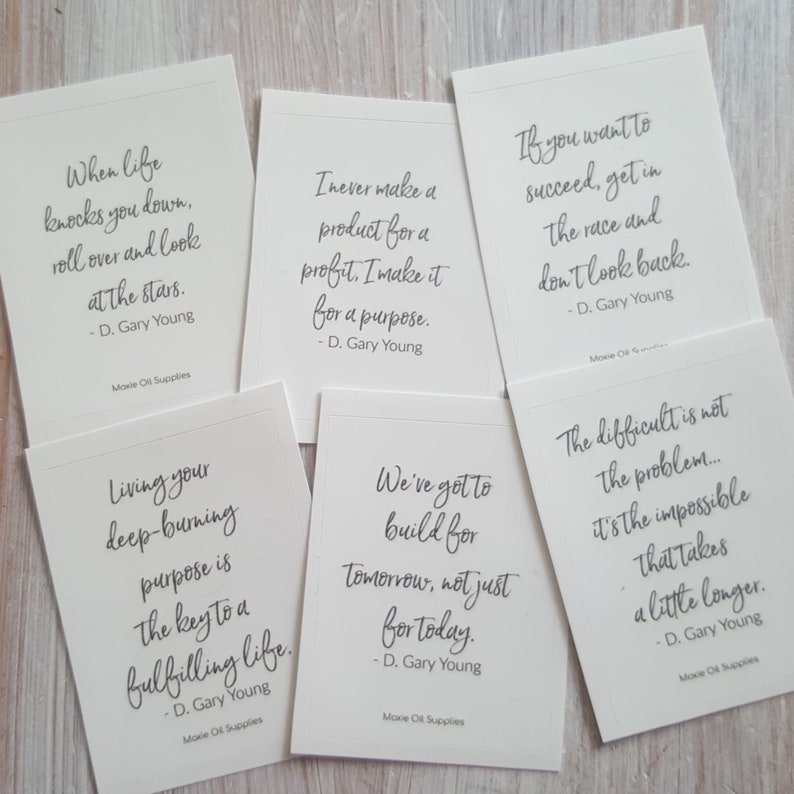 When life
knocks you down,
roll over and look
at the stars.
- D. Gary Young
Moxie Oil Supplies
I never make a
product for a
profit, I make it
for a purpose.
- D. Gary Young
If you want to
succeed, get in
the race and
don't look back.
- D. Gary Young
Moxie Oil Supplies
Living your
deep-burning
purpose is
the key to a
fulfilling life.
- D. Gary Young
Moxie Oil Supplies
We've got to
build for
tomorrow, not just
for today.
- D. Gary Young
Moxie Oil Supplies
The difficult is not
the problem...
it's the impossible
that takes
a little longer.
- D. Gary Young
Moxie Oil Supplies